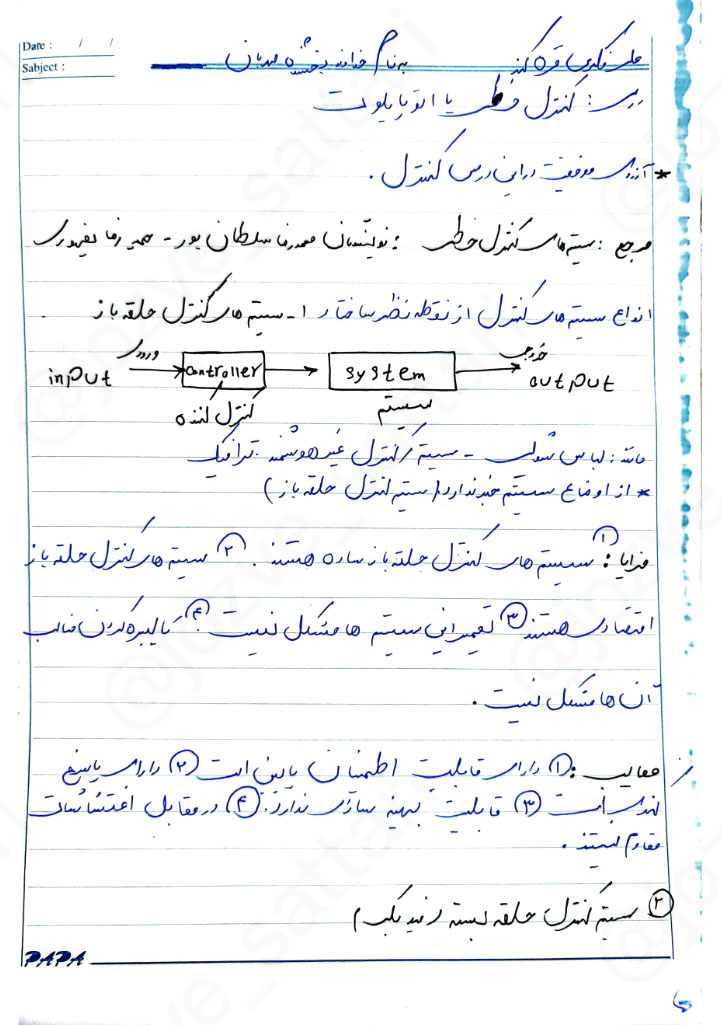 Date : / /
Sabject :
به نام خداوند بخشنده مهربان
درس : کنترل خطی یا اتوپایلوت
* آرزوی موفقیت در این درس کنترل .
مرجع : سیستم های کنترل خطی : نویسندگان محمدرضا سلطان پور - حمید رضا
انواع سیستم های کنترل از نقطه نظر ساختار ۱ - سیستم های کنترل حلقه باز
input ورودی controller system خروجی output
کنترل کننده سیستم
مانند : لباس شوئی - سیستم کنترل غیر هوشمند ترافیک
* از اوضاع سیستم خبر ندارد (سیستم کنترل حلقه باز)
مزایا : ① سیستم های کنترل حلقه باز ساده هستند . ② سیستم های کنترل حلقه باز
اقتصادی هستند ③ تعمیر این سیستم ها مشکل نیست . ④ کالیبره کردن مناسب
آن ها مشکل نیست .
معایب : ① دارای قابلیت اطمنان پایین است ② دارای پاسخ
کندی است ③ قابلیت بهینه سازی ندارد . ④ در مقابل اغتشاشات
مقاوم نیستند .
② سیستم کنترل حلقه بسته (فیدبک)
PAPA
@jozve_sattari